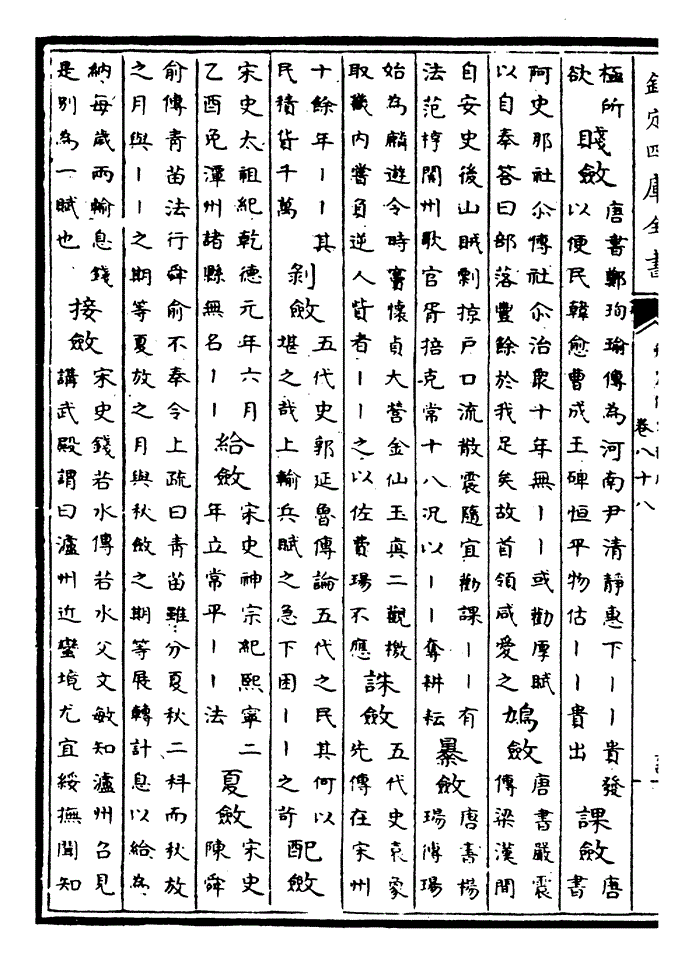 欽定四庫全書
卷八十八
極所
欲
賤斂
唐書鄭珣瑜傳為河南尹清靜惠下丨丨貴發
以便民韓愈曹成王碑恒平物估丨丨貴出
課斂
唐
書
阿史那社尒傳社尒治衆十年無丨丨或勸厚賦
以自奉答曰部落豐餘於我足矣故首領咸愛之
鳩斂
唐書嚴震
傳梁漢間
自安史後山賊剽掠户口流散震隨宜勸課丨丨有
法范椁閬州歌官胥掊克常十八況以丨丨奪耕耘
暴斂
唐書楊
瑒傳瑒
始為麟遊令時竇懷貞大營金仙玉真二觀檄
取畿内嘗負逆人貲者丨丨之以佐費瑒不應
誅斂
五代史袁象
先傳在宋州
十餘年丨丨其
民積貨千萬
剝斂
五代史郭延魯傳論五代之民其何以
堪之哉上輸兵賦之急下困丨丨之苛
配斂
宋史太祖紀乾德元年六月
乙酉免潭州諸縣無名丨丨
給斂
宋史神宗紀熙寧二
年立常平丨丨法
夏斂
宋史
陳舜
俞傳青苗法行舜俞不奉令上疏曰青苗雖分夏秋二科而秋放
之月與丨丨之期等夏放之月與秋斂之期等展轉計息以給為
納每歲兩輸息錢
是別為一賦也
接斂
宋史錢若水傳若水父文敏知瀘州召見
講武殿謂曰瀘州近蠻境尤宜綏撫聞知